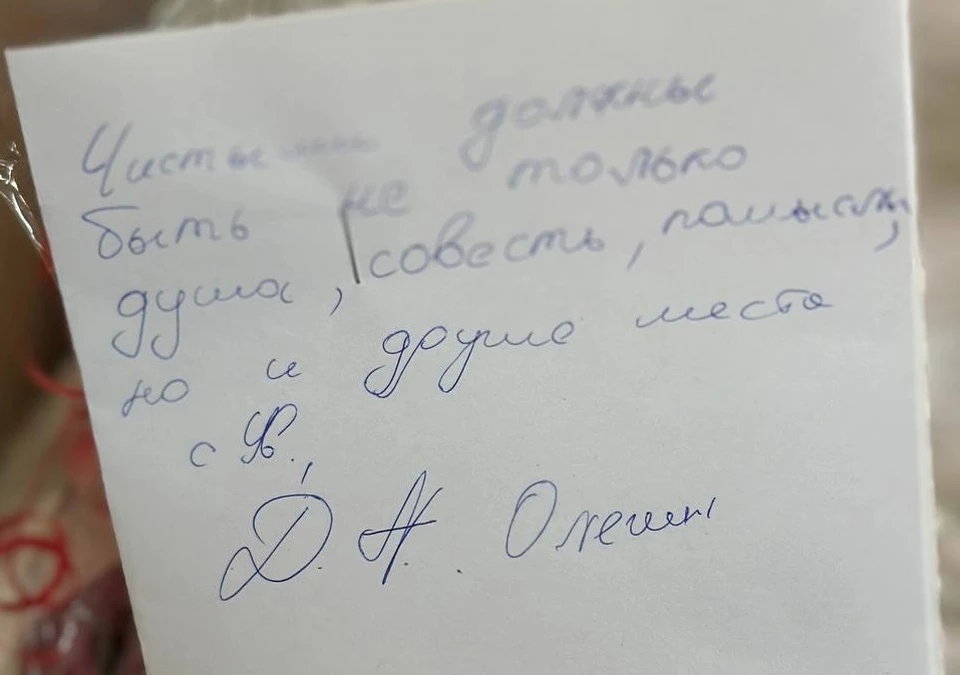 Чисты должны
быть не только
душа, совесть, помыслы,
но и другие места
с
Д. Н.